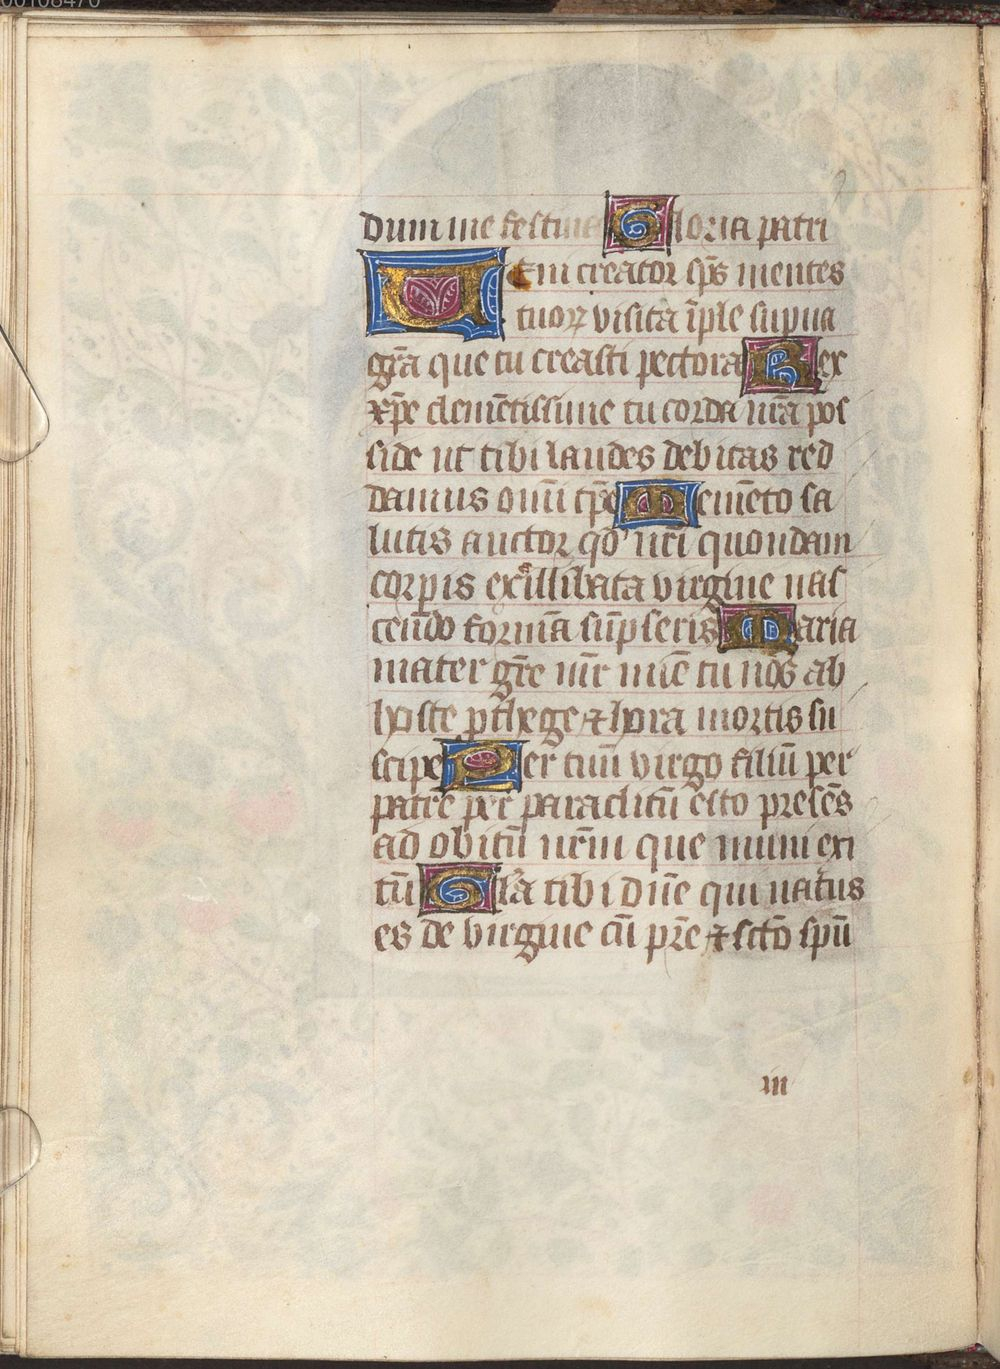 dum me festina Gloria patri
Veni creator sp̄s mentes
tuoꝝ visita īple supna
gr̄a que tu creasti pectora Rex
xp̄e clemētissime tu corda nr̄a pos
side ut tibi laudes debitas red
damus om̄i tp̄e Memēto sa
lutis auctor qd' nr̄i quondam
corpis ex illibata virgine nas
cendo formā sūpseris Maria
mater gr̄e mr̄ mie tu nos ab
hoste p̄thege & hora mortis su
scipe Per tuū virgo filiū per
patrē per paraclitū esto presēs
ad obitū nr̄m que muni exi
tū Gl̄a tibi dn̄e qui natus
es de virgine cū pr̄e & sctō spū
iii